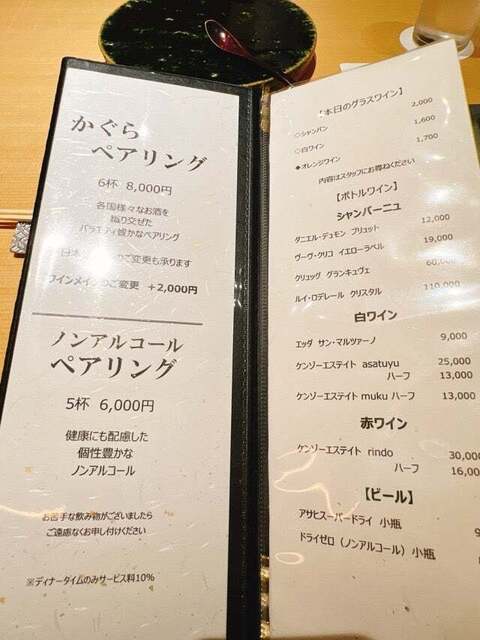 かぐら
ペアリング
6杯 8,000円
各国様々なお酒を
織り交ぜた
バラエティ豊かなペアリング
日本 のご変更も承ります
ワインメイン のご変更 +2,000円
ノンアルコール
ペアリング
5杯 6,000円
健康にも配慮した
個性豊かな
ノンアルコール
お苦手な飲み物がございましたら
ご遠慮なくお申し付けください
※ディナータイムのみサービス料10%
【本日のグラスワイン】
◇シャンパン 2,000
◇白ワイン 1,600
◆オレンジワイン 1,700
内容はスタッフにお尋ねください
【ボトルワイン】
シャンパーニュ
ダニエル・デュモン ブリュット 12,000
ヴーヴ・クリコ イエローラベル 19,000
クリュッグ グランキュヴェ 60,000
ルイ・ロデレール クリスタル 110,000
白ワイン
エッダ サン・マルツァーノ 9,000
ケンゾーエステイト asatuyu 25,000
ハーフ 13,000
ケンゾーエステイト muku ハーフ 13,000
赤ワイン
ケンゾーエステイト rindo 30,000
ハーフ 16,000
【ビール】
アサヒスーパードライ 小瓶
ドライゼロ（ノンアルコール）小瓶